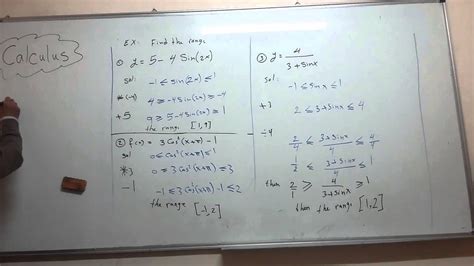 Calculus
EX: Find the range
① y = 5 - 4 Sin(2x)
Sol: -1 ≤ Sin(2x) ≤ 1
*(-4) 4 ≥ -4 Sin(2x) ≥ -4
+5 9 ≥ 5-4 Sin(2x) ≥ 1
the range [1,9]
② f(x) = 3 Cos²(x+π) - 1
Sol 0 ≤ Cos²(x+π) ≤ 1
*3 0 ≤ 3 Cos²(x+π) ≤ 3
-1 -1 ≤ 3 Cos²(x+π) -1 ≤ 2
the range [-1,2]
③ y = 4 / 3+Sinx
Sol: -1 ≤ Sinx ≤ 1
+3 2 ≤ 3+Sinx ≤ 4
÷4 2/4 ≤ 3+Sinx/4 ≤ 4/4
1/2 ≤ 3+Sinx/4 ≤ 1
then 2/1 ≥ 4/3+Sinx ≥ 1
then the range [1,2]